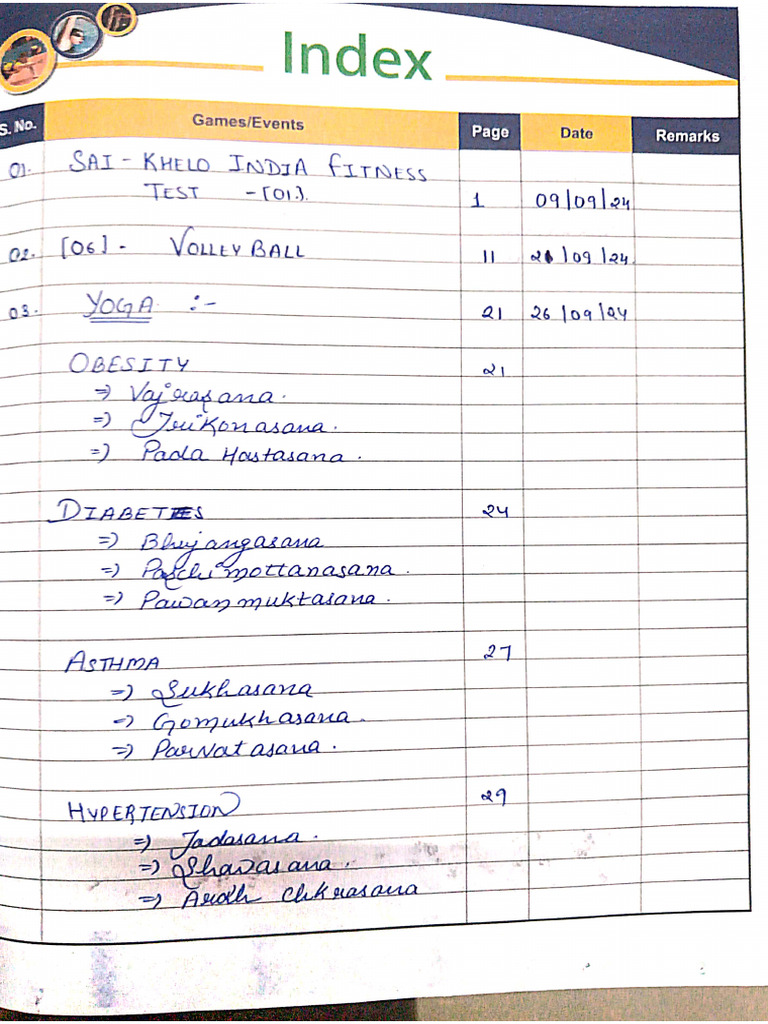 Index
S. No. Games/Events Page Date Remarks
01. SAI - KHELO INDIA FITNESS
TEST - [01]. 1 09/09/24
02. [06] - VOLLEYBALL 11 21/09/24.
03. YOGA :- 21 26/09/24
OBESITY 21
=> Vajrasana.
=> Trikonasana.
=> Pada Hastasana.
DIABETES 24
=> Bhujangasana
=> Paschimottanasana.
=> Pawanmuktasana.
ASTHMA 27
=> Sukhasana
=> Gomukhasana.
=> Parvatasana.
HYPERTENSION 29
=> Tadasana.
=> Shavasana.
=> Ardh Chkrasana